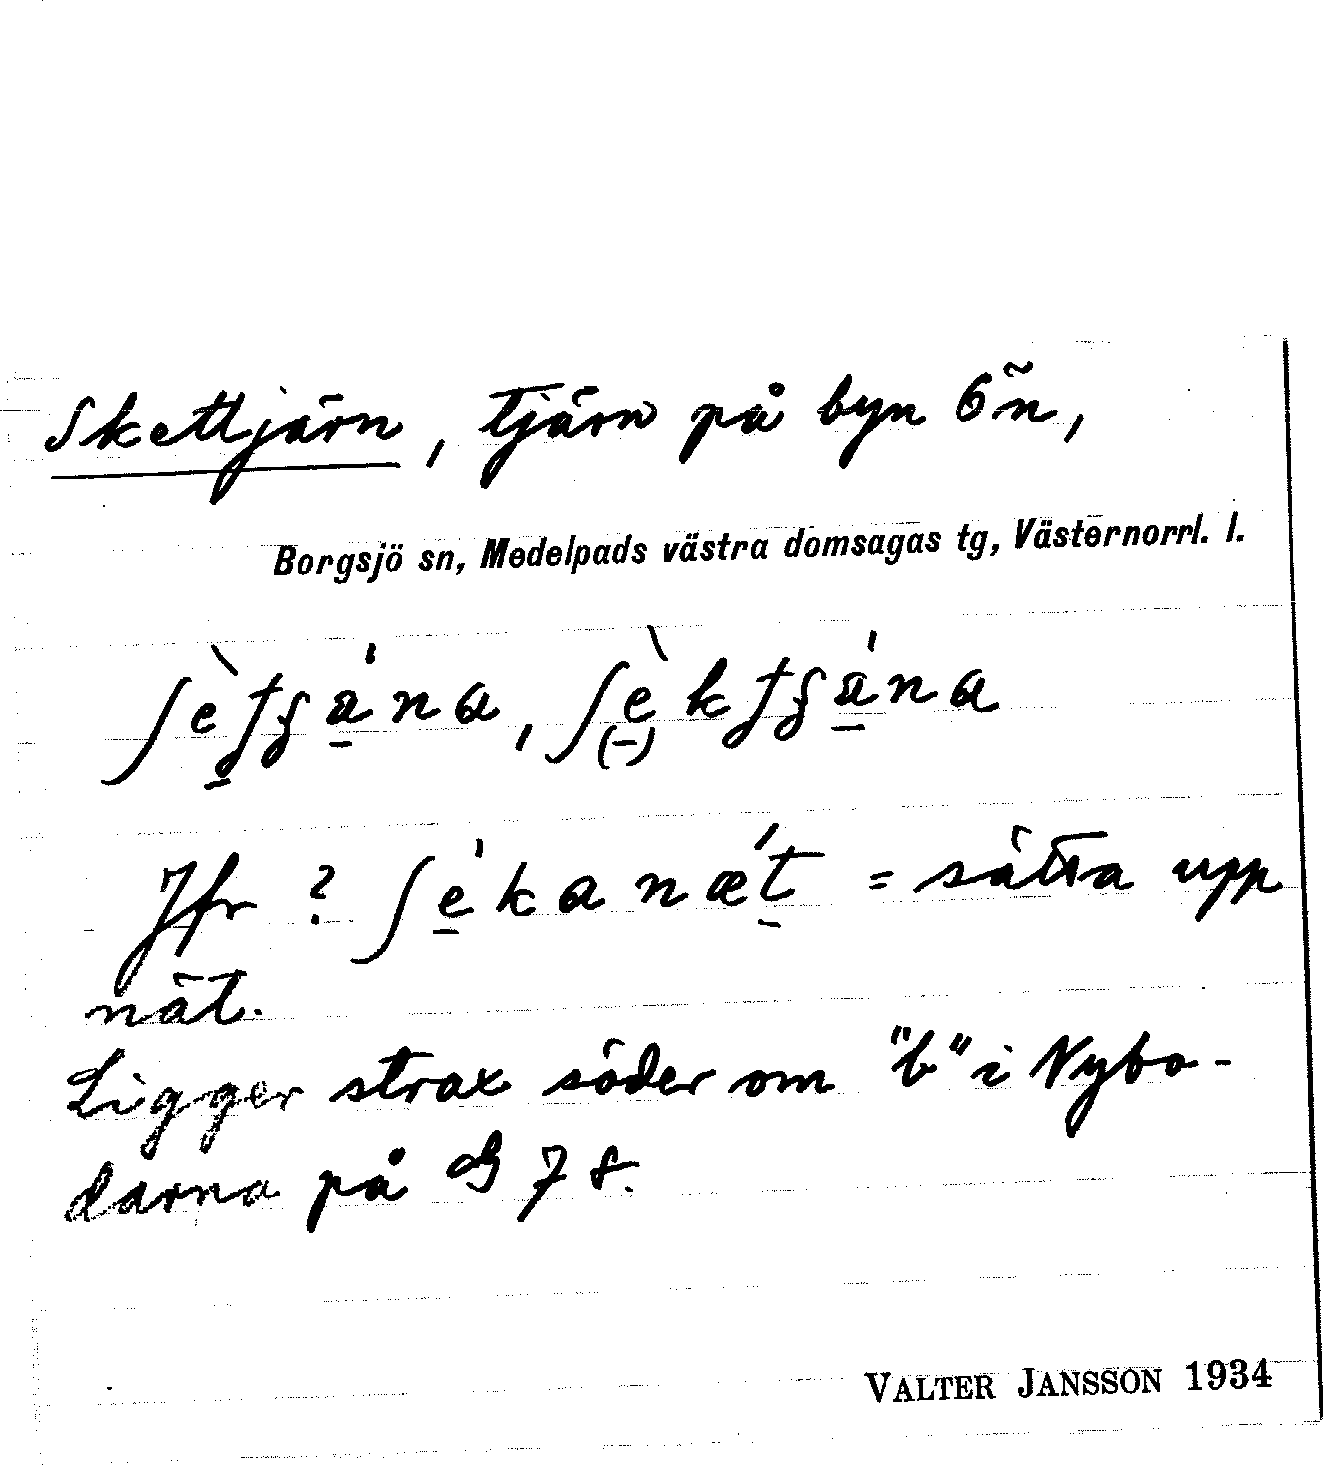 Skettjärn, tjärn på byn Ön,
Borgsjö sn, Medelpads västra domsagas tg, Västernorrl. l.
Jfr ? = sätta upp
nät.
Ligger strax söder om "b" i Nybo-
darna på 78.
VALTER JANSSON 1934